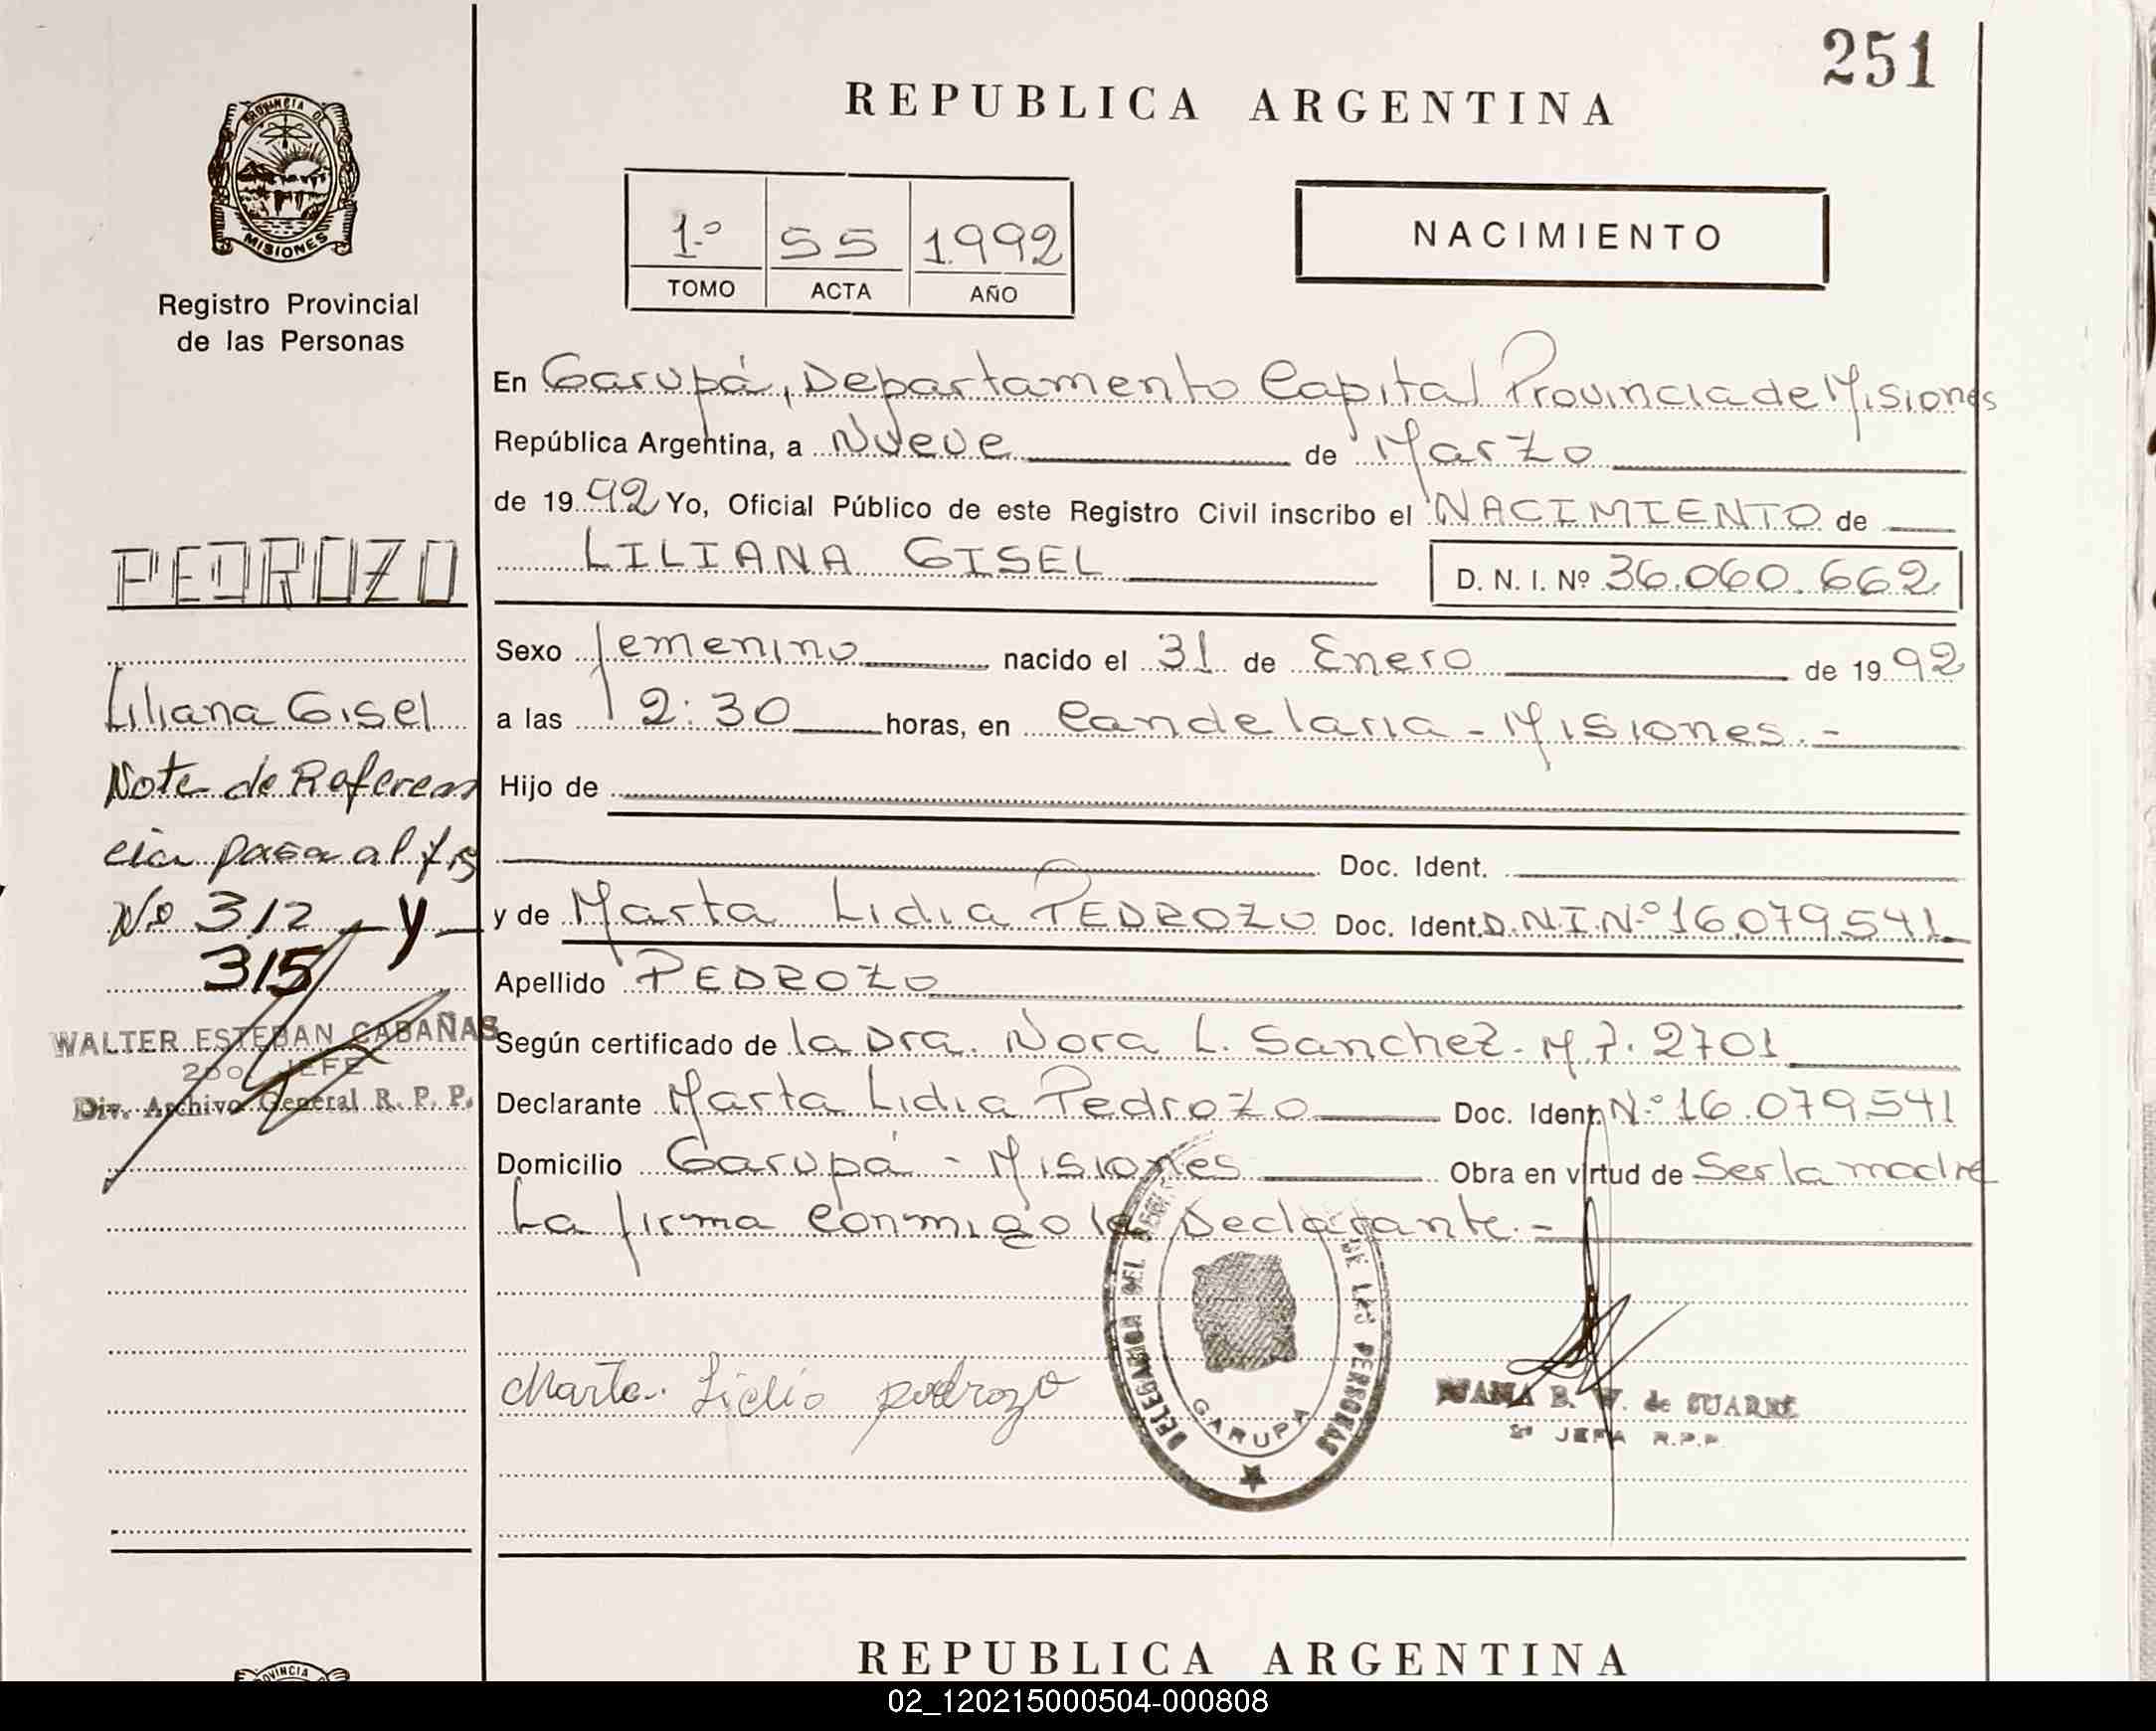 251
REPUBLICA ARGENTINA
PROVINCIA DE
MISIONES
Registro Provincial
de las Personas
1.º 55 1992
TOMO ACTA AÑO
NACIMIENTO
En Garupá, Departamento Capital Provincia de Misiones
República Argentina, a Nueve de Marzo
de 1992 Yo, Oficial Público de este Registro Civil inscribo el NACIMIENTO de
LILIANA GISEL D. N. I. Nº 36.060.662
Sexo femenino nacido el 31 de Enero de 1992
a las 2:30 horas, en Candelaria - Misiones.-
Hijo de
Doc. Ident.
y de Marta Lidia PEDROZO Doc. Ident. D.N.I.Nº 16.079.541
Apellido PEDROZO
Según certificado de la Dra. Nora L. Sanchez. M.P. 2701
Declarante Marta Lidia Pedrozo Doc. Ident. Nº 16.079.541
Domicilio Garupá - Misiones Obra en virtud de Ser la madre
La firma conmigo la Declarante.-
Marta Lidia pedrozo
DELEGACION DEL DE LAS PERSONAS
GARUPA
B. W. de SUAREZ
2º JEFA R.P.P.
PEDROZO
Liliana Gisel
Nota de Referen
cia pasa al
Nº 312 - y -
315
WALTER ESTEBAN CABAÑAS
2do. JEFE
Div. Archivo General R. P. P.
REPUBLICA ARGENTINA
PROVINCIA
02_120215000504-000808